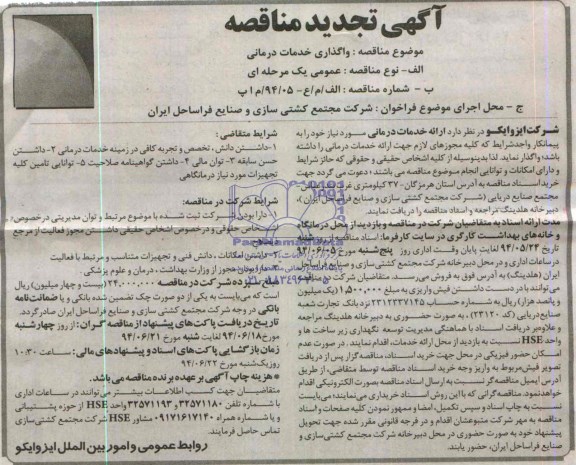 آگهی تجدید مناقصه
موضوع مناقصه : واگذاری خدمات درمانی
الف- نوع مناقصه : عمومی یک مرحله ای
ب - شماره مناقصه : الف/م/ع-۹۴/۰۵/م ا پ
ج - محل اجرای موضوع فراخوان : شرکت مجتمع کشتی سازی و صنایع فراساحل ایران
شرکت ایزوایکو در نظر دارد ارائه خدمات درمانی مورد نیاز خود را به
پیمانکار واجدشرایط که کلیه مجوزهای لازم جهت ارائه خدمات درمانی را داشته
باشد؛ واگذار نماید. لذا بدینوسیله از کلیه اشخاص حقیقی و حقوقی که حائز شرایط
و دارای امکانات و توانایی انجام موضوع مناقصه می باشند؛ دعوت می گردد جهت
خرید اسناد مناقصه به آدرس استان هرمزگان-۳۷ کیلومتری غرب
مجتمع صنایع دریایی (شرکت مجتمع کشتی سازی و صنایع فراساحل ایران)،
دبیرخانه هلدینگ مراجعه و اسناد مناقصه را دریافت نمایند.
مدت ارائه اسناد به متقاضیان شرکت در مناقصه و بازدید از محل درمانگاه
و خانه های بهداشت کارگری در سایت کارفرما: اسناد مناقصه از روز شنبه
تاریخ ۹۴/۰۵/۲۴ لغایت پایان وقت اداری روز پنج شنبه مورخ ۹۴/۰۶/۰۵
در ساعات اداری و در محل دبیرخانه شرکت مجتمع کشتی سازی و صنایع فراساحل
ایران (هلدینگ) به آدرس فوق به فروش می رسد. متقاضیان شرکت در مناقصه
می توانند با در دست داشتن فیش واریزی به مبلغ ۱,۵۰۰,۰۰۰ (یک میلیون
و پانصد هزار) ریال به شماره حساب ۲۳۱۲۳۳۷۱۴۵ نزد بانک تجارت شعبه
صنایع دریایی (کد ۲۳۱۲۰)، به صورت حضوری به دبیرخانه هلدینگ مراجعه
و علاوه بر دریافت اسناد با هماهنگی مدیریت توسعه نگهداری زیر ساخت ها و
واحد HSE نسبت به بازدید از محل ارائه خدمات، اقدام نمایند . در صورت عدم
امکان حضور فیزیکی در محل جهت خرید اسناد، مناقصه گزار پس از دریافت
تصویر فیش مربوط به واریز وجه خرید اسناد مناقصه توسط متقاضی، از طریق
آدرس ایمیل مناقصه گر نسبت به ارسال اسناد مناقصه بصورت الکترونیکی اقدام
خواهد نمود. مناقصه گرانی که با این روش اسناد خریداری می نمایند؛ می بایست
نسبت به چاپ اسناد و سپس تکمیل، امضا و ممهور نمودن کلیه صفحات و اسناد
مناقصه به مهر شرکت متبوعشان اقدام و در فرجه قانونی مقرر شده جهت تحویل
پیشنهاد خود به صورت حضوری در محل دبیرخانه شرکت مجتمع کشتی سازی و
صنایع فراساحل ایران، حضور یابند.
شرایط متقاضی :
۱-داشتن دانش، تخصص و تجربه کافی در زمینه خدمات درمانی ۲-داشتن
حسن سابقه ۳- توان مالی ۴- داشتن گواهینامه صلاحیت ۵- توانایی تامین کلیه
تجهیزات مورد نیاز درمانگاهی
شرایط شرکت در مناقصه:
۱- دارا بودن شرکت ثبت شده با موضوع مرتبط و توان مدیریتی در خصوص
حقوقی و در خصوص اشخاص حقیقی داشتن مجوز فعالیت از مرجع
۲- داشتن امکانات، دانش فنی و تجهیزات متناسب و مرتبط با فعالیت
مجوز از وزارت بهداشت ، درمان و علوم پزشکی
مبلغ سپرده شرکت در مناقصه ۲۴,۰۰۰,۰۰۰ (بیست و چهار میلیون) ریال
است که می بایست به یکی از دو صورت چک تضمین شده بانکی و یا ضمانت نامه
بانکی در وجه شرکت مجتمع کشتی سازی و صنایع فراساحل ایران صادر گردد.
تاریخ دریافت پاکت های پیشنهاد از مناقصه گران: از روز چهارشنبه
مورخ ۹۴/۰۶/۱۸ لغایت شنبه مورخ ۹۴/۰۶/۲۱
زمان بازگشایی پاکت های اسناد و پیشنهادهای مالی: ساعت ۱۰:۳۰
روز یک شنبه مورخ ۹۴/۰۶/۲۲
* هزینه چاپ آگهی بر عهده برنده مناقصه می باشد.
متقاضیان جهت کسب اطلاعات بیشتر می توانند در ساعات اداری
با شماره تلفن ۳۳۵۷۱۱۸۰ و ۳۳۵۷۱۱۶۳ واحد HSE از حوزه پشتیبانی
و یا شماره همراه ۰۹۱۷۱۶۱۷۱۴۰ مشاور HSE شرکت مجتمع کشتی سازی
تماس حاصل فرمایند.
روابط عمومی و امور بین الملل ایزوایکو